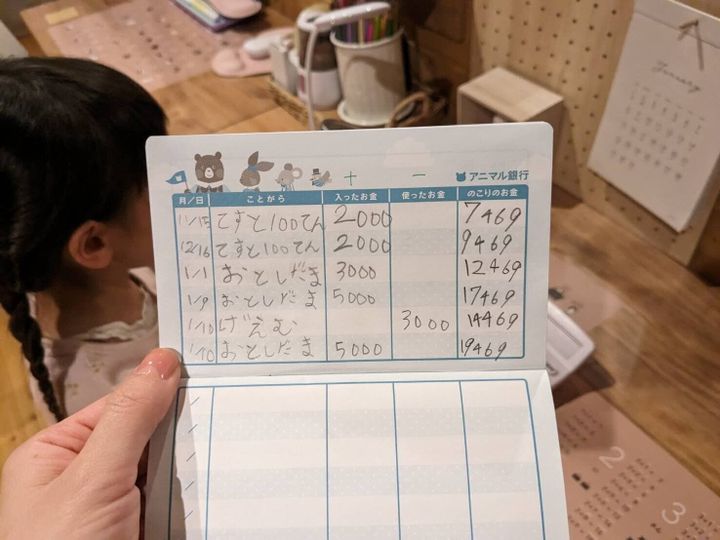 十 一 アニマル銀行
月/日 ことがら 入ったお金 使ったお金 のこりのお金
11/15 てすと100てん 2000 7469
12/16 てすと100てん 2000 9469
1/1 おとしだま 3000 12469
1/9 おとしだま 5000 17469
1/10 げえむ 3000 14469
1/10 おとしだま 5000 19469
January
2
3